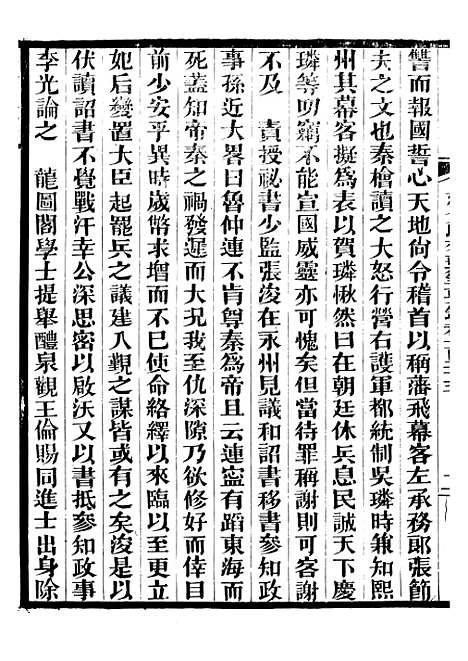 讐而報國誓心天地尙令稽首以稱藩飛幕客左承務郎張節
夫之文也秦檜讀之大怒行營右護軍都統制吳璘時兼知熙
州其幕客擬爲表以賀璘愀然曰在朝廷休兵息民誠天下慶
璘等叨竊不能宣國威靈亦可愧矣但當待罪稱謝則可客謝
不及　責授祕書少監張浚在永州見議和詔書移書參知政
事孫近大畧曰魯仲連不肯尊秦爲帝且云連寧有蹈東海而
死蓋知帝秦之禍發遲而大我至仇深隙乃欲修好而倖目
前少安乎異時歲幣求增而不已使命絡繹以來臨以至更立
妃后變置大臣起罷兵之議建入覲之謀皆或有之矣浚是以
伏讀詔書不覺戰汗幸公深思密以啟沃又以書抵參知政事
李光論之　龍圖閣學士提舉醴泉觀王倫賜同進士出身除